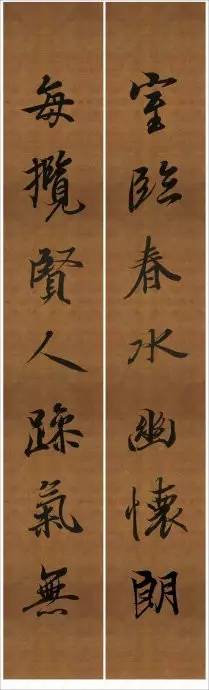 室臨春水幽懷朗
每攬賢人躁氣無